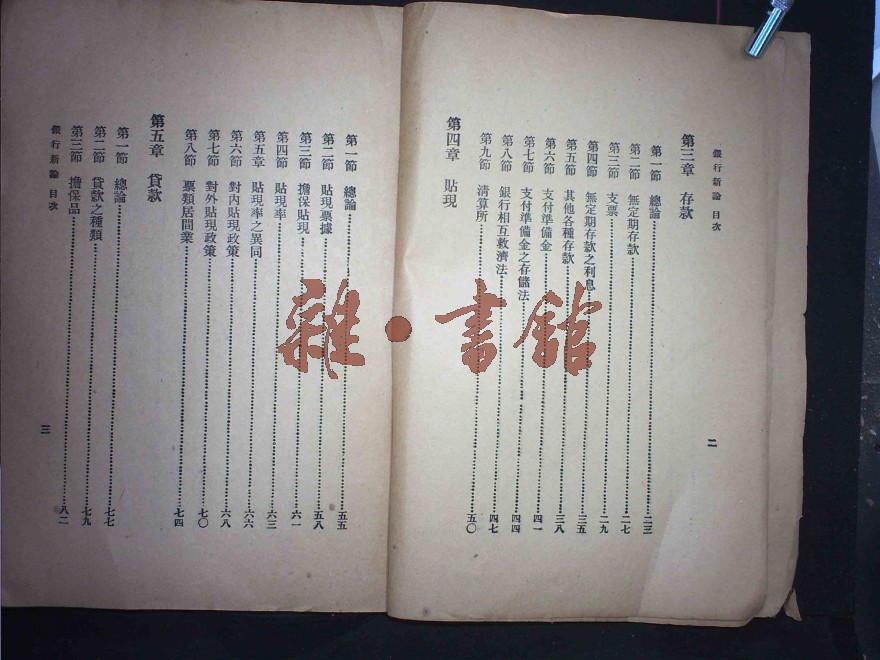 銀行新論 目次
二
第三章 存款
第一節 總論 二三
第二節 無定期存款 二七
第三節 支票 二九
第四節 無定期存款之利息 三五
第五節 其他各種存款 三八
第六節 支付準備金 四一
第七節 支付準備金之存儲法 四四
第八節 銀行相互救濟法 四七
第九節 清算所 五〇
第四章 貼現
第一節 總論 五五
第二節 貼現票據 五八
第三節 擔保貼現 六一
第四節 貼現率 六三
第五章 貼現率之異同 六六
第六節 對內貼現政策 六八
第七節 對外貼現政策 七〇
第八節 票類居間業 七四
第五章 貸款
第一節 總論 七七
第二節 貸款之種類 七九
第三節 擔保品 八二
銀行新論 目次
三
雜·書館